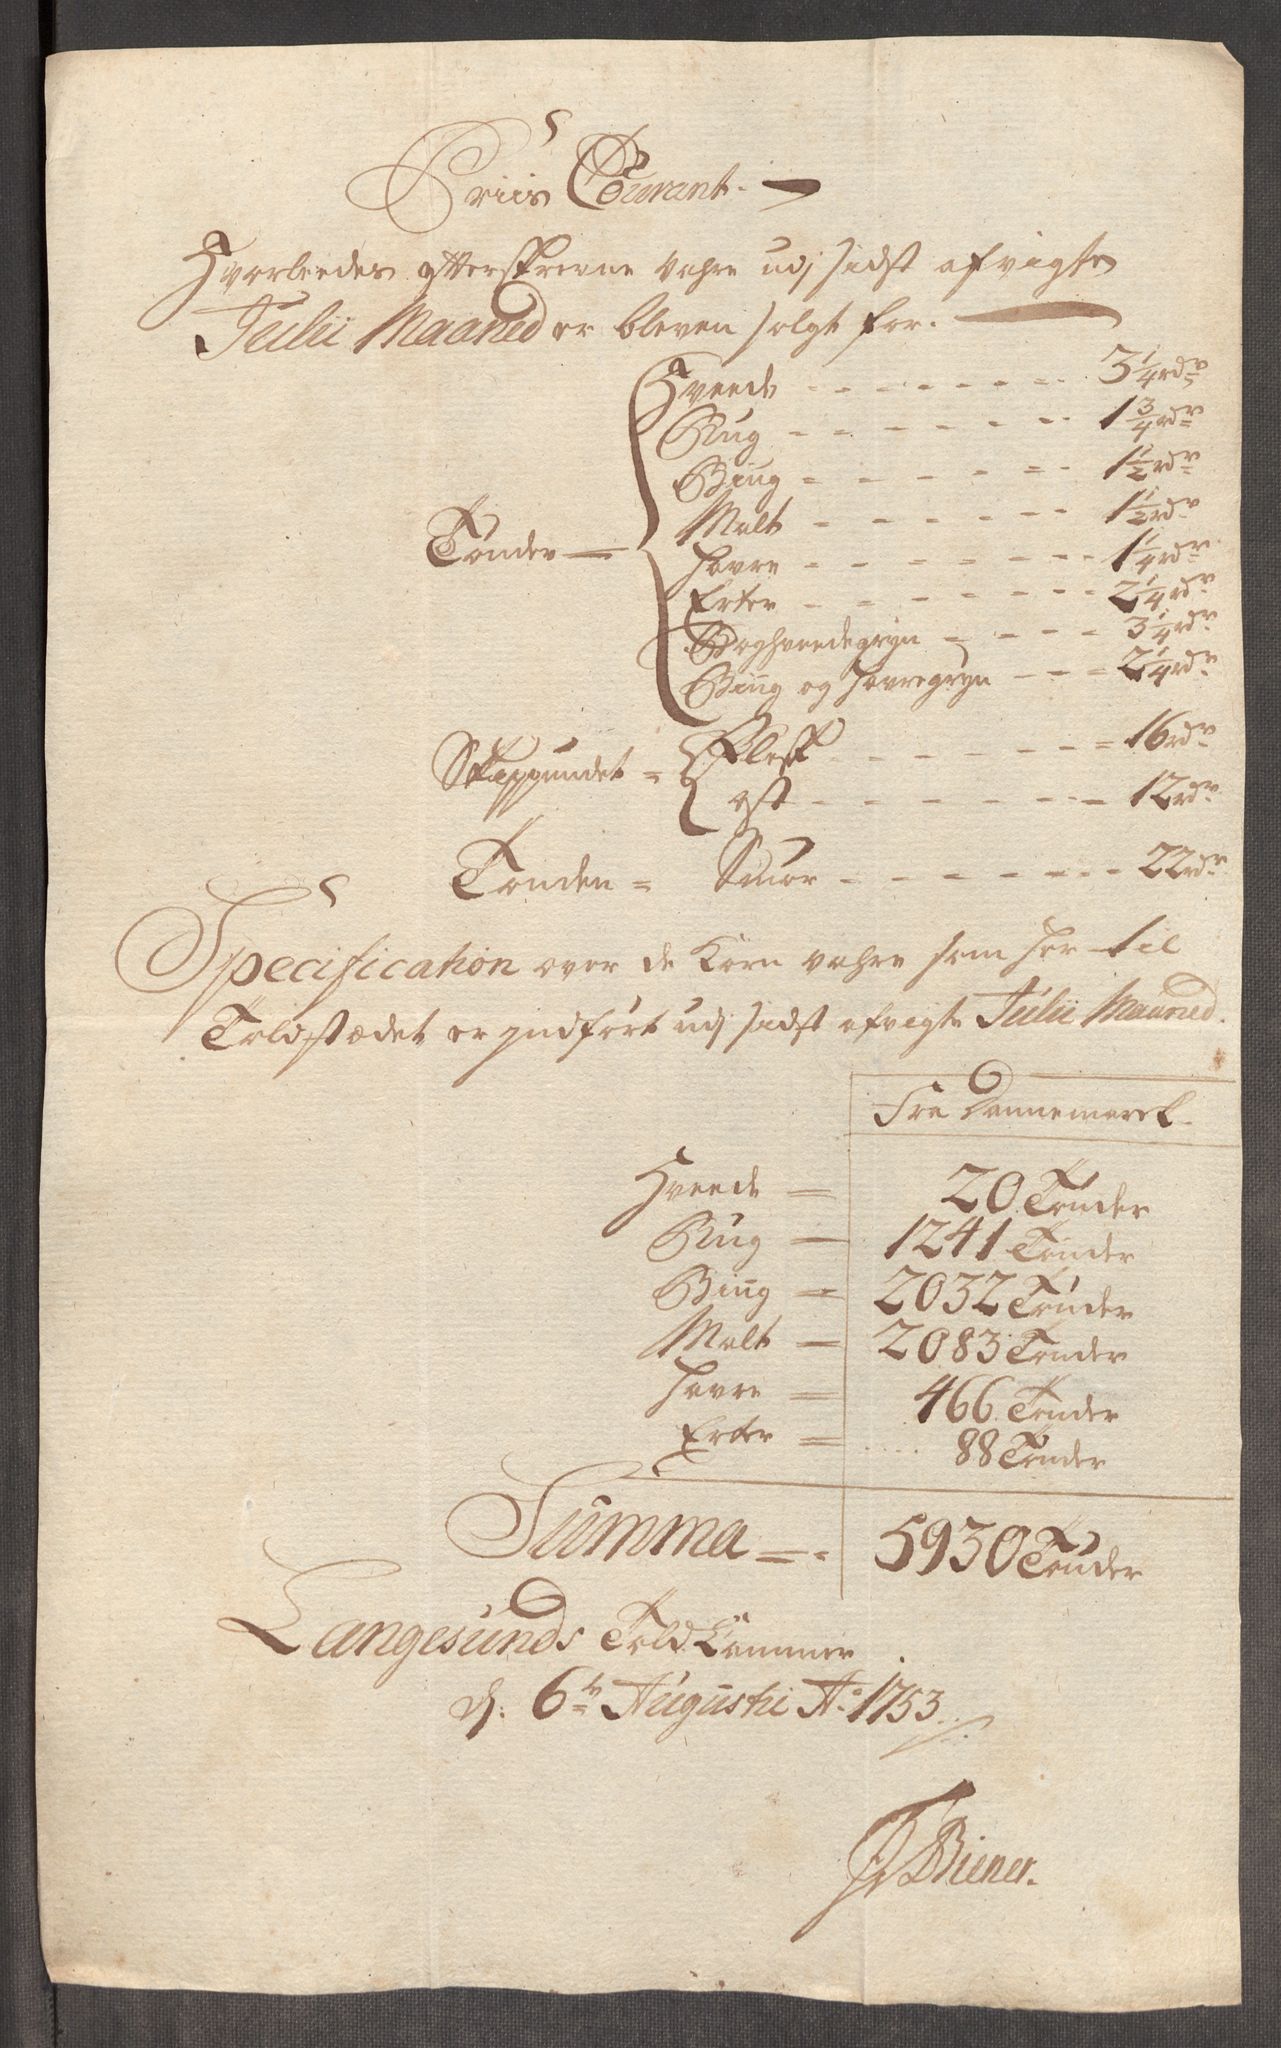 Priis Courant.
Hvorleedes efterskrevne vahre udj sidst afvigte
Julii Maaned er bleven solgt for.
Hveede - - - - - - - 3 1/4 rdr
Rug - - - - - - - 1 3/4 rdr
Biug - - - - - - - 1 1/2 rdr
Malt - - - - - - - 1 1/2 rdr
Tønder = Havre - - - - - - - 1 1/4 rdr
Erter - - - - - - - 2 1/4 rdr
Boghveedegryn - - - - 3 1/4 rdr
Biug og Havregryn - - - 2 1/4 rdr
Skippundet = Flesk - - - - - - 16 rdr
ost - - - - - - 12 rdr
Tønden = Smør - - - - - - - 22 rdr
Specification over de Korn vahre som her til
Toldstædet er indført udj sidst afvigte Julii Maaned.
Fra Dannemarck.
Hveede = 20 Tønder
Rug = 1241 Tønder
Biug = 2032 Tønder
Malt = 2083 Tønder
Havre = 466 Tønder
Erter = 88 Tønder
Summa = 5930 Tønder
Langesunds Told Cammer
d: 6te Augusti Ao 1753.
Biener.